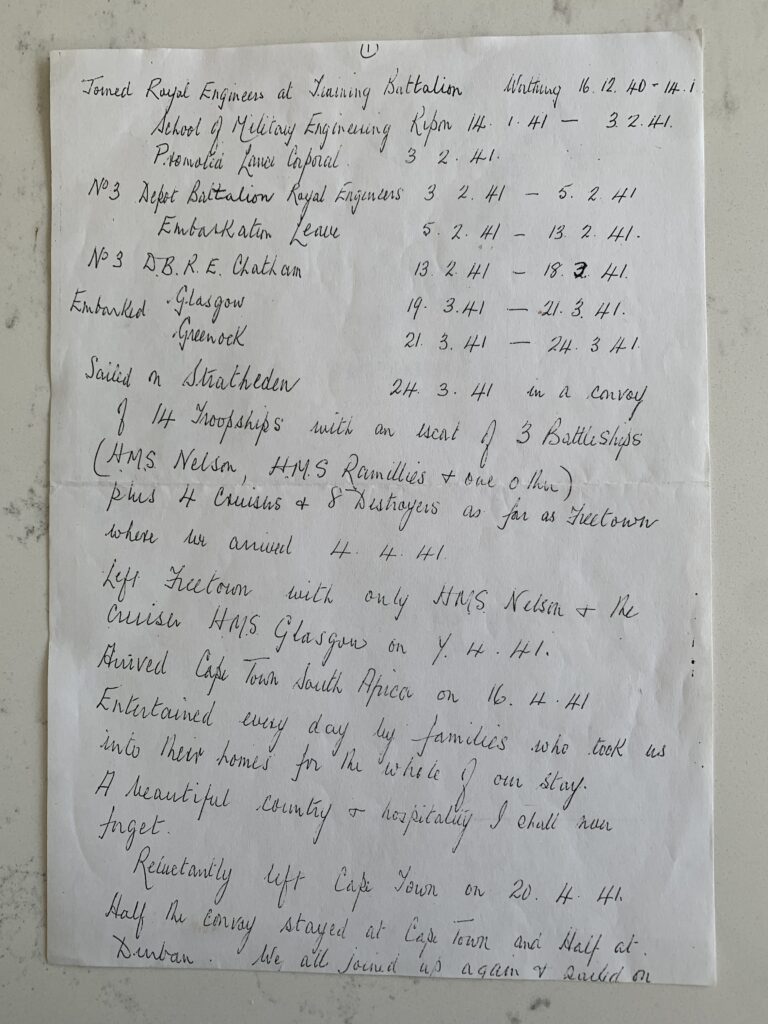 (1)
Joined Royal Engineers at Training Battalion Worthing 16.12.40 - 14.1
School of Military Engineering Ripon 14.1.41 — 3.2.41.
Promoted Lance Corporal. 3 2.41.
No 3 Depot Battalion Royal Engineers 3 2.41 — 5.2.41
Embarkation Leave 5.2.41 — 13 2.41.
No 3 D.B.R.E. Chatham 13.2.41 — 18.3.41.
Embarked Glasgow 19.3.41 — 21.3.41.
Greenock 21.3.41 — 24.3 41.
Sailed on Stratheden 24.3.41 in a convoy
of 14 Troopships with an escort of 3 Battleships
(H.M.S. Nelson, H.M.S Ramillies + one other)
plus 4 Cruisers + 8 Destroyers as far as Freetown
where we arrived 4.4.41.
Left Freetown with only H.M.S. Nelson + the
Cruiser H.M.S. Glasgow on 7.4.41.
Arrived Cape Town South Africa on 16.4.41
Entertained every day by families who took us
into their homes for the whole of our stay.
A beautiful country + hospitality I shall never
forget.
Reluctantly left Cape Town on 20.4.41.
Half the convoy stayed at Cape Town and Half at
Durban. We all joined up again + sailed on